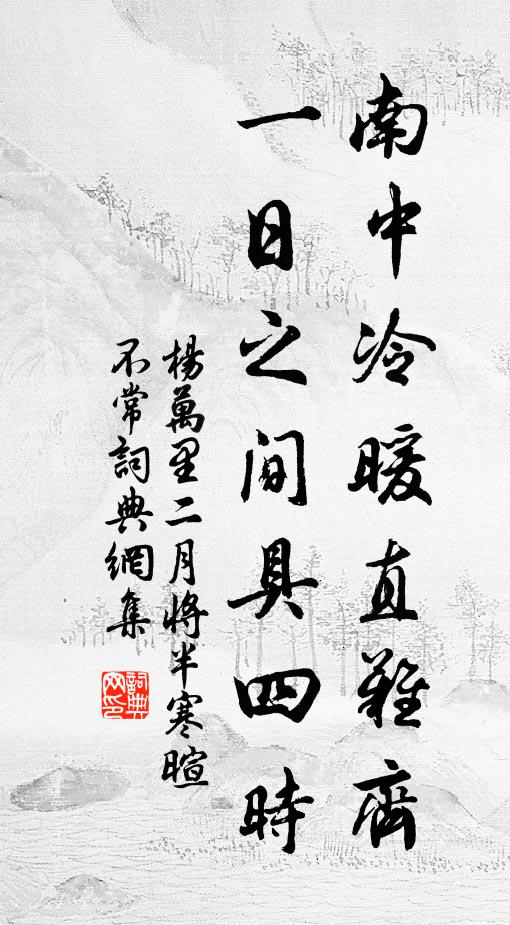 南中冷暖直難齊
一日之间具四時
楊萬里二月將半寒暄
不常詞典網集
詞典
网印